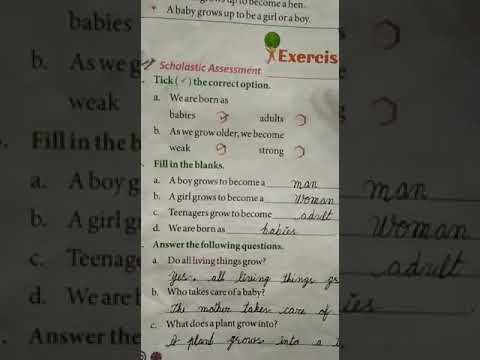 up to become a hen.
A baby grows up to be a girl or a boy.
Exercis
Scholastic Assessment
Tick (✓) the correct option.
a. We are born as
babies adults
b. As we grow older, we become
weak strong
Fill in the blanks.
a. A boy grows to become a man
b. A girl grows to become a woman
c. Teenagers grow to become adult
d. We are born as babies
Answer the following questions.
a. Do all living things grow?
Yes, all living things
b. Who takes care of a baby?
The mother takes care of
c. What does a plant grow into?
A plant grows into a